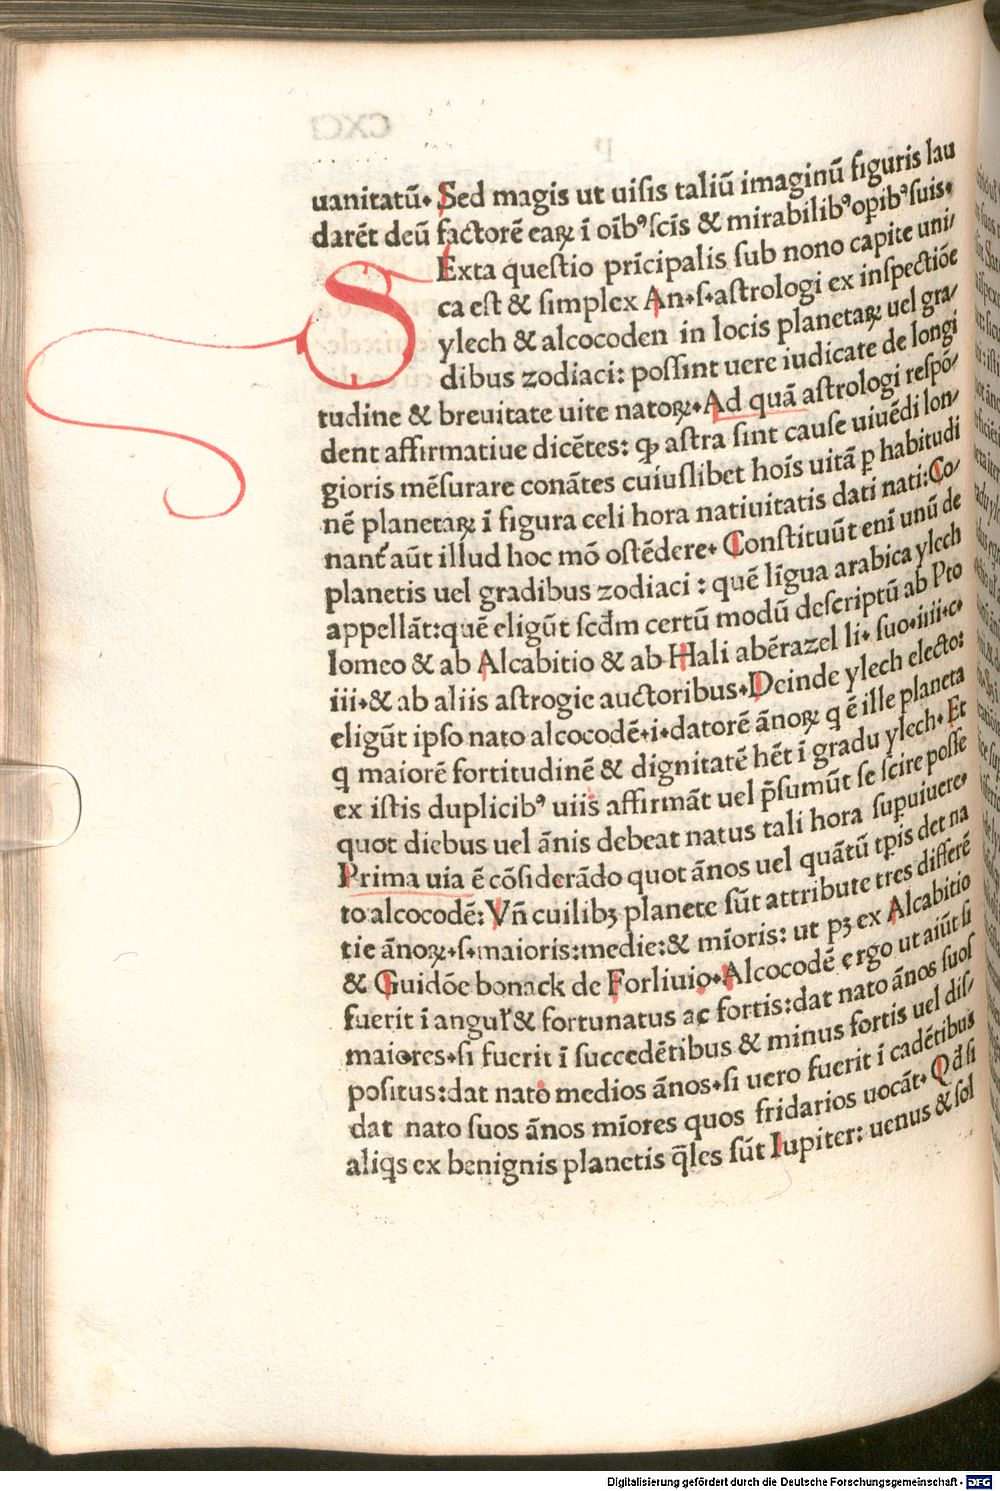 uanitatū. Sed magis ut uiſis taliū imaginū figuris lau
darēt deū factorē eaꝝ ī oīb⁹ ſcīs & mirabilib⁹ opib⁹ ſuis.
SExta queſtio prīcipalis ſub nono capite uni/
ca eſt & ſimplex An.ſ.aſtrologi ex inſpectiōe
ylech & alcocoden in locis planetaꝝ uel gra/
dibus zodiaci: poſſint uere iudicate de longi
tudine & breuitate uite natoꝝ. Ad quā aſtrologi reſpō/
dent affirmatiue dicētes: ꝙ aſtra ſint cauſe uiuēdi lon/
gioris mēſurare conātes cuiuſlibet hoīs uitā ꝑ habitudi
nē planetaꝝ ī figura celi hora natiuitatis dati nati: Co/
nant̄ aūt illud hoc mō oſtēdere. Conſtituūt enī unū de
planetis uel gradibus zodiaci: quē līgua arabica ylech
appellāt: quē eligūt ſcd̄m certū modū deſcriptū ab Pto
lomeo & ab Alcabitio & ab Hali abērazel li. ſuo.iiii.c.
iii.& ab aliis aſtrogie auctoribus. Deinde ylech electo:
eligūt ipſo nato alcocodē.i.datorē ānoꝝ q ē ille planeta
q maiorē fortitudinē & dignitatē hēt ī gradu ylech. Et
ex iſtis duplicib⁹ uiis affirmāt uel p̄ſumūt ſe ſcire poſſe
quot diebus uel ānis debeat natus tali hora ſupuiuere.
Prima uia ē cōſiderādo quot ānos uel quātū tp̄is det na
to alcocodē: Vn̄ cuilibꝫ planete ſūt attribute tres differē
tie ānoꝝ.ſ.maioris: medie: & mīoris: ut pꝫ ex Alcabitio
& Guidōe bonack de Forliuio. Alcocodē ergo ut aiūt ſi
fuerit ī angul̄ & fortunatus ac fortis: dat nato ānos ſuoſ
maiores.ſi fuerit ī ſuccedētibus & minus fortis uel diſ/
poſitus: dat nato medios ānos.ſi uero fuerit ī cadētibus
dat nato ſuos ānos mīores quos fridarios uocāt. Qd̄ ſi
aliqs ex benignis planetis q̄les ſūt Iupiter: uenus & ſol
Digitalisierung gefördert durch die Deutsche Forschungsgemeinschaft - DFG